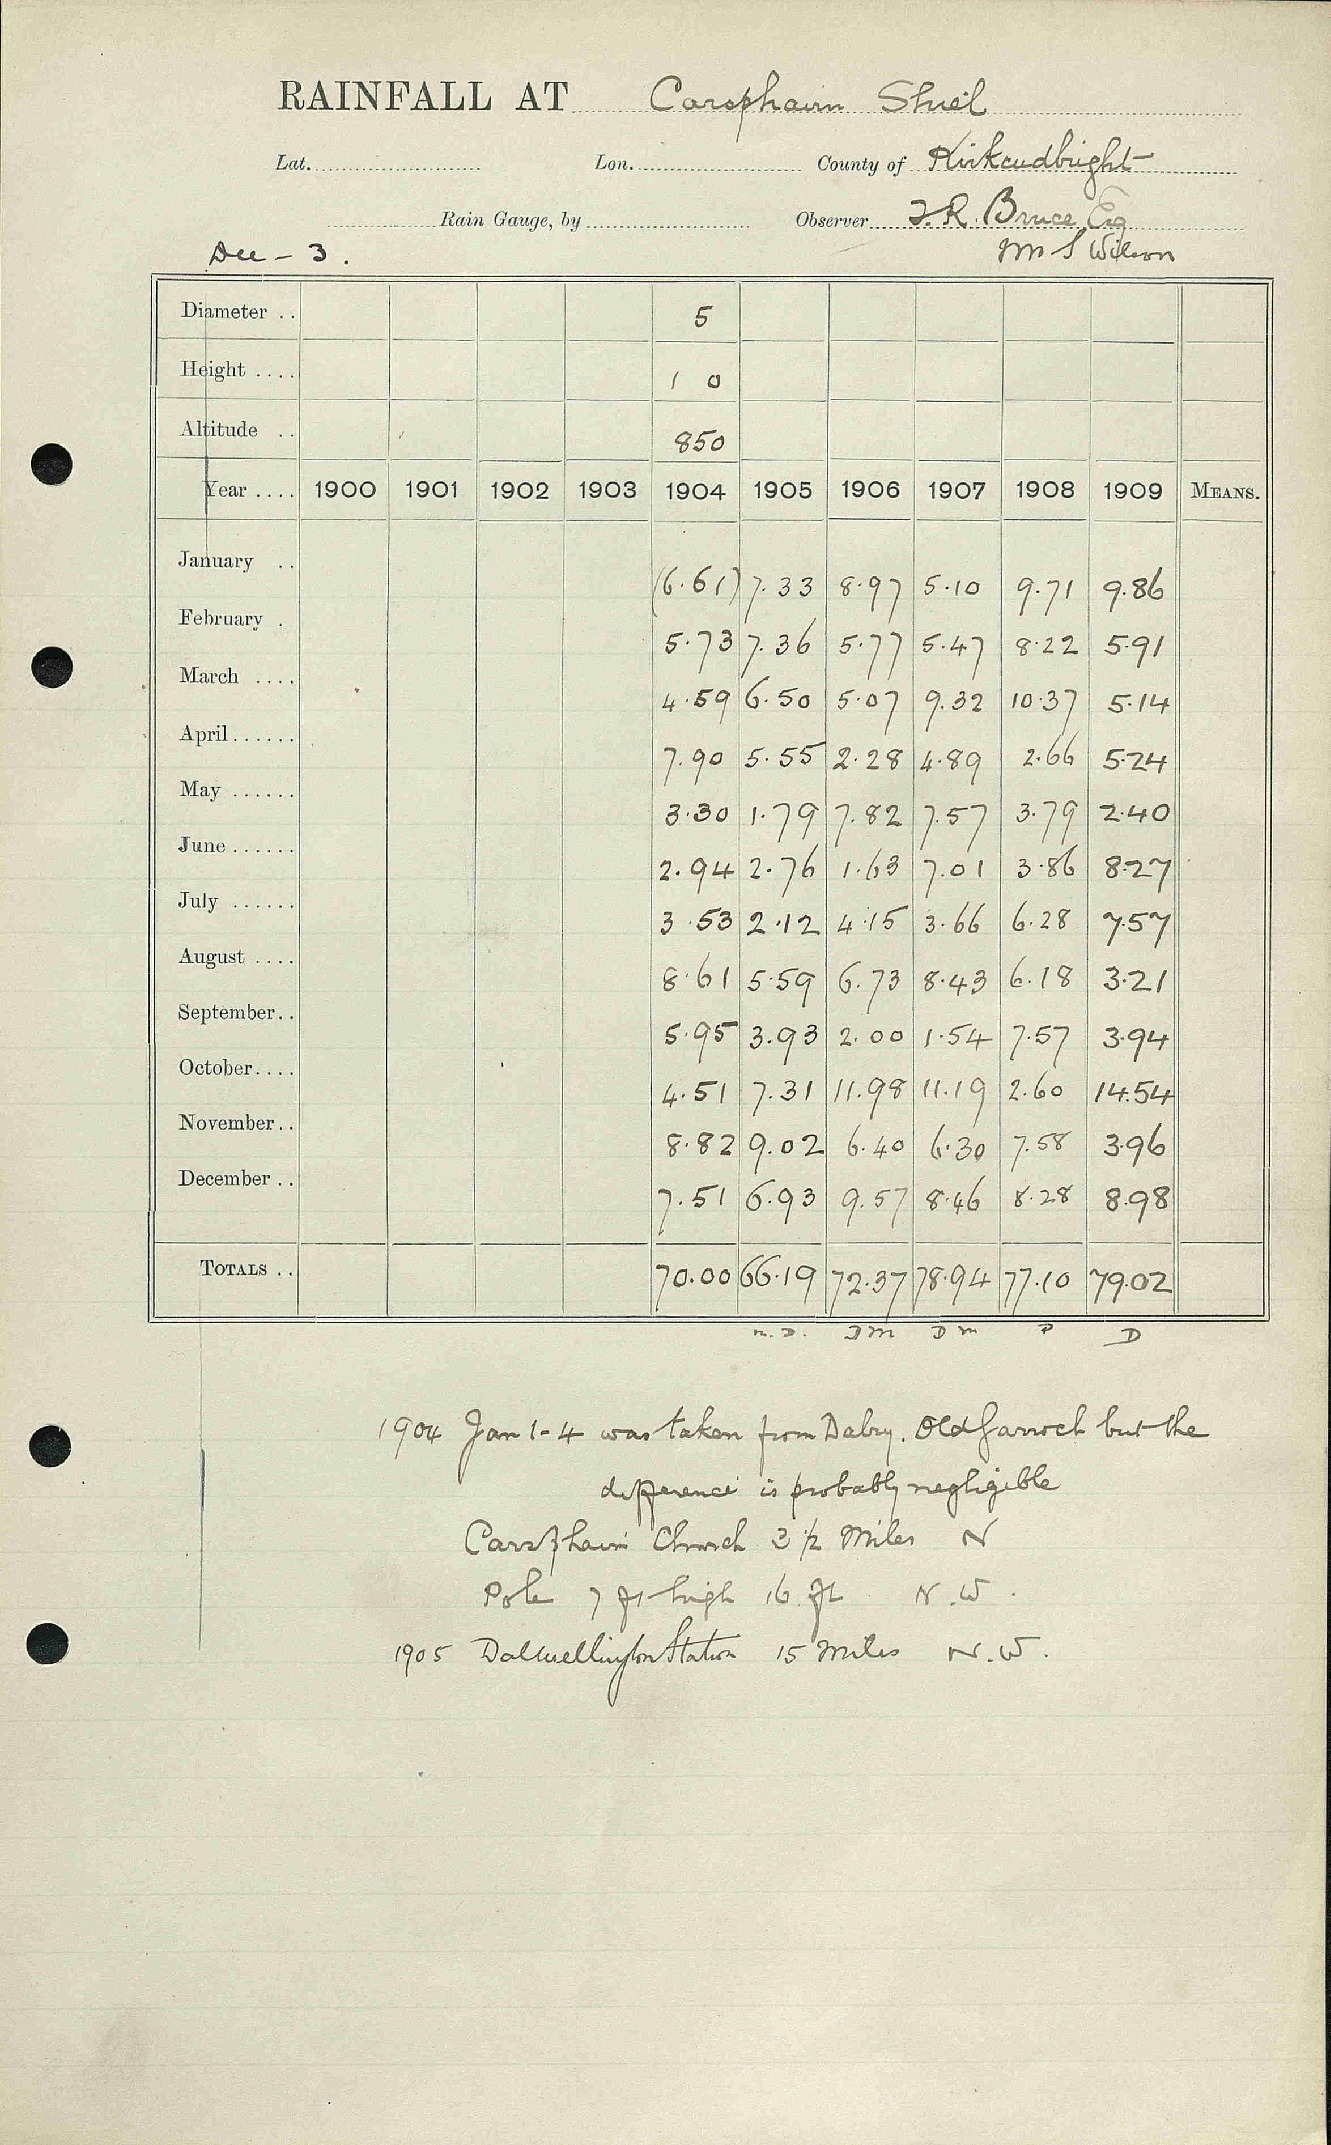 RAINFALL AT Carsphairn Shiel
Lat. Lon. County of Kirkcudbright
Rain Gauge, by Observer F. R. Bruce Esq
Dee - 3. Mr S Wilson
Diameter .. 5
Height .... 1 0
Altitude .. 850
Year .... 1900 1901 1902 1903 1904 1905 1906 1907 1908 1909 MEANS.
January .. (6.61) 7.33 8.97 5.10 9.71 9.86
February . 5.73 7.36 5.77 5.47 8.22 5.91
March .... 4.59 6.50 5.07 9.32 10.37 5.14
April...... 7.90 5.55 2.28 4.89 2.66 5.24
May ...... 3.30 1.79 7.82 7.57 3.79 2.40
June ...... 2.94 2.76 1.63 7.01 3.86 8.27
July ...... 3.53 2.12 4.15 3.66 6.28 7.57
August .... 8.61 5.59 6.73 8.43 6.18 3.21
September.. 5.95 3.93 2.00 1.54 7.57 3.94
October.... 4.51 7.31 11.98 11.19 2.60 14.54
November.. 8.82 9.02 6.40 6.30 7.58 3.96
December .. 7.51 6.93 9.57 8.46 8.28 8.98
TOTALS .. 70.00 66.19 72.37 78.94 77.10 79.02
m.D. DM DM D
1904 Jan 1-4 was taken from Dalry. Old Garroch but the
difference is probably negligible
Carsphairn Church 3 1/2 Miles N
Pole 7 ft high 16 ft N.W.
1905 Dalmellington Station 15 miles N.W.